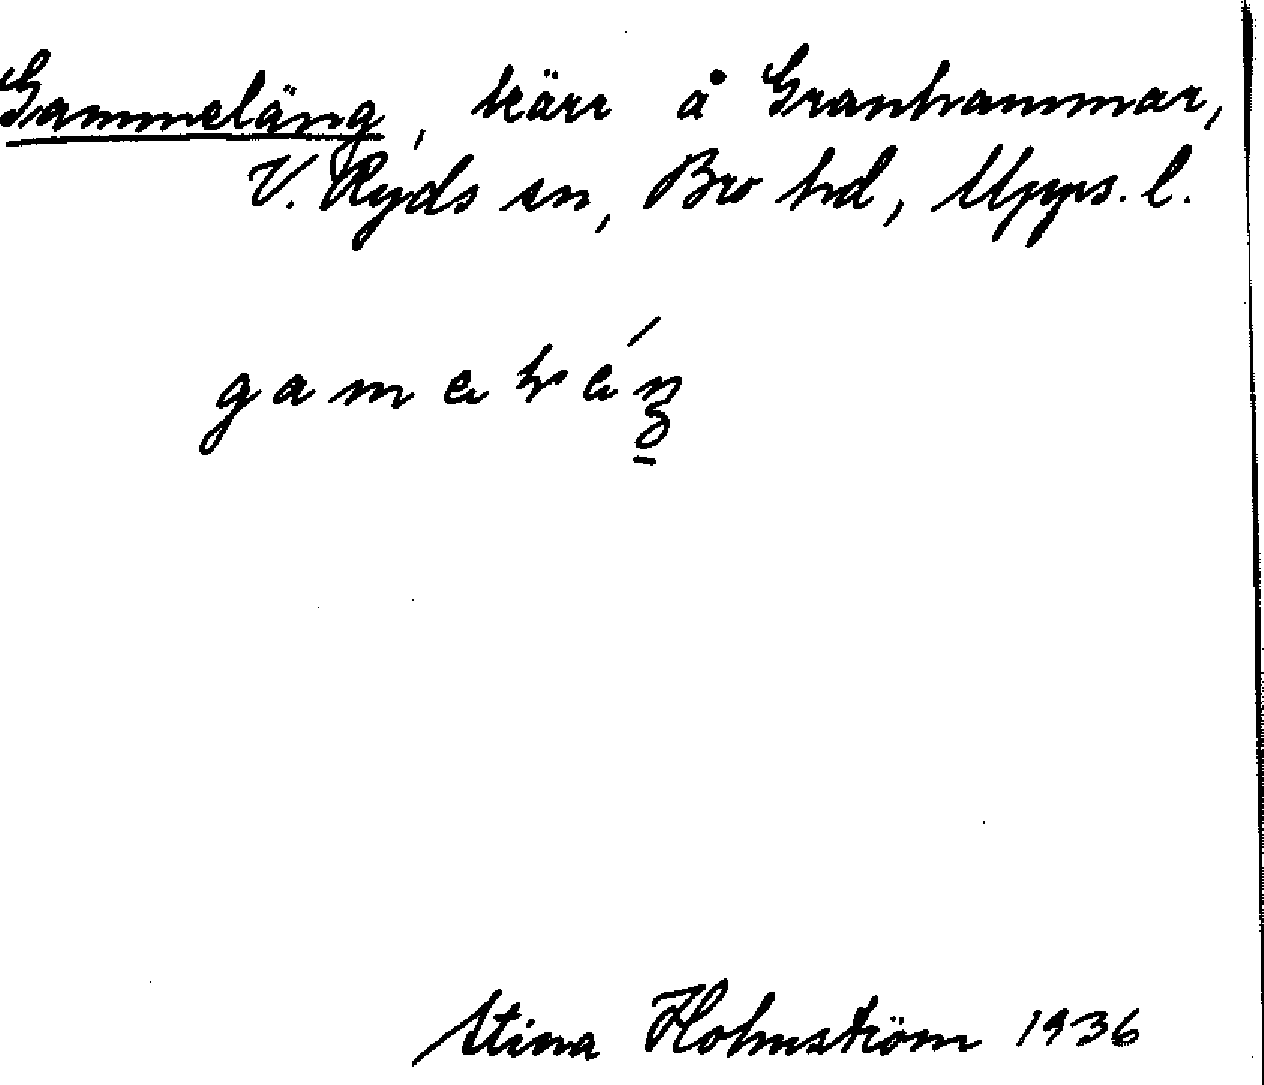 Gammeläng, kärr å Granhammar,
V. Ryds sn, Bro hd, Upps. l.
Stina Holmström 1936